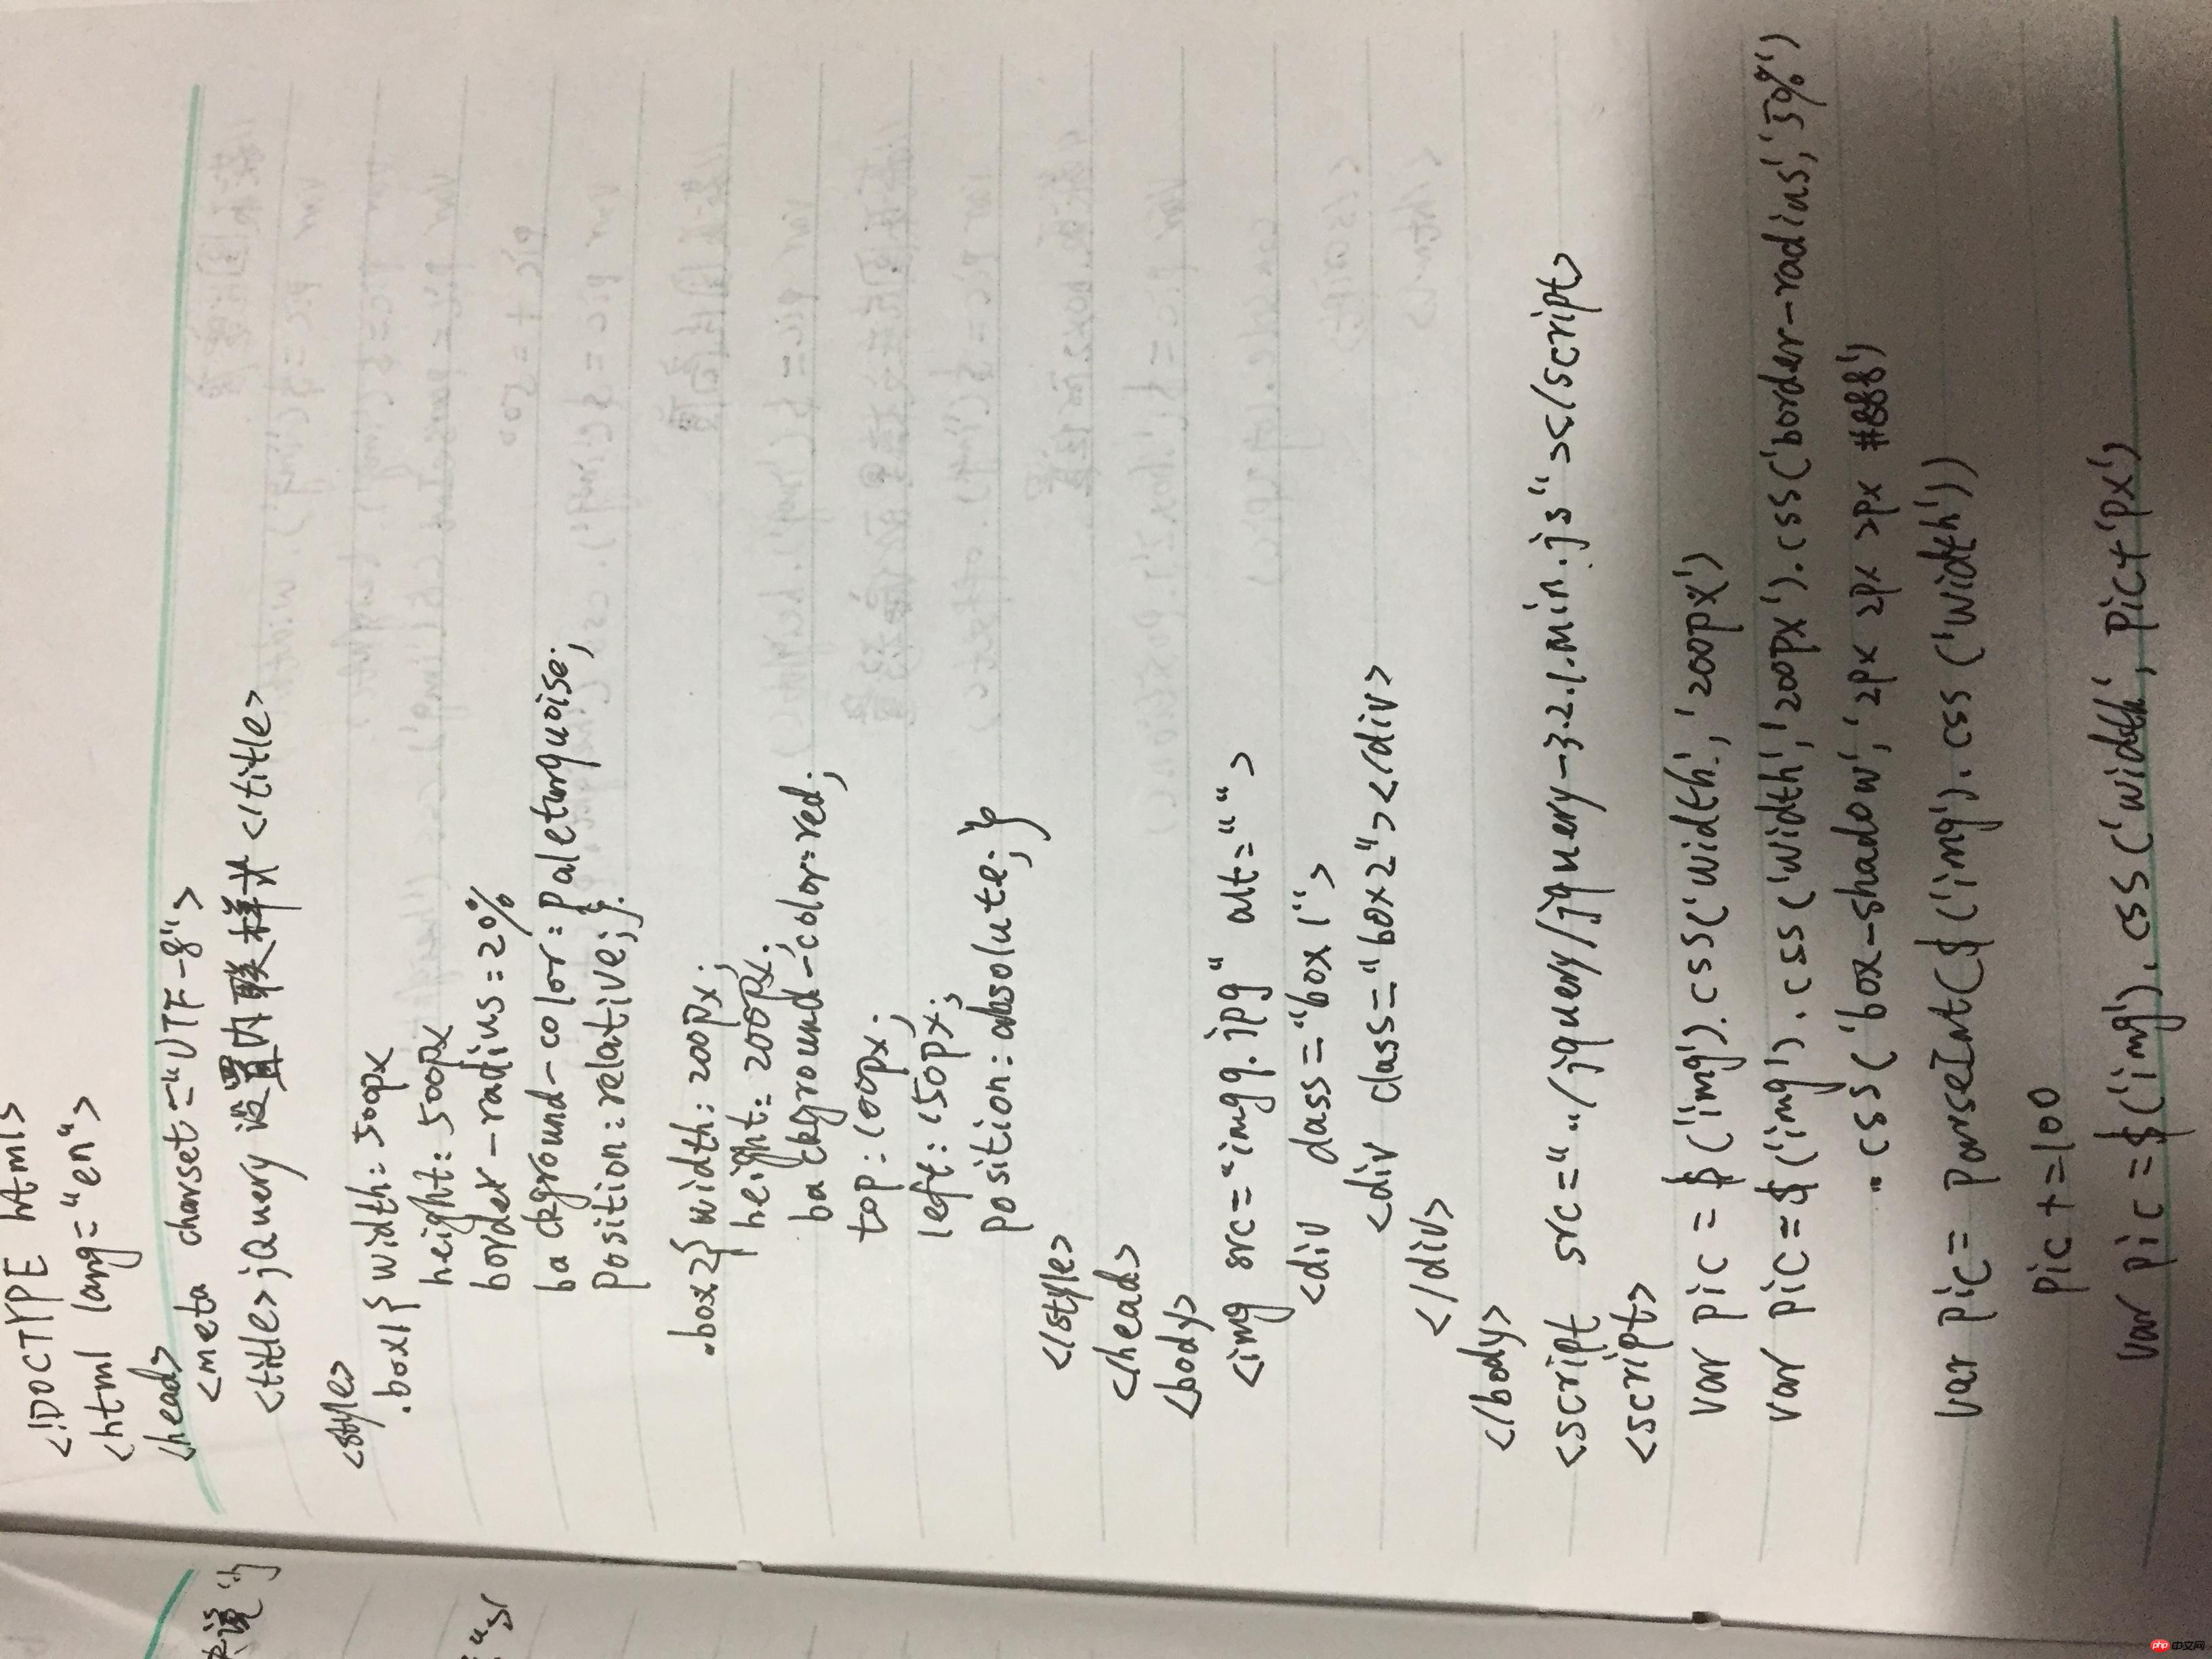 <!DOCTYPE html>
<html lang="en">
<head>
<meta charset="UTF-8">
<title>jQuery 设置内联样式</title>
<style>
.box1{ width: 500px
height: 500px
border-radius: 20%
background-color: paleturquoise;
position: relative;}
.box2{ width: 200px;
height: 200px;
background-color: red;
top: 100px;
left: 150px;
position: absolute;}
</style>
</head>
<body>
<img src="imgg.jpg" alt="">
<div class="box1">
<div class="box2"></div>
</div>
</body>
<script src="../jquery/jquery-3.2.1.min.js"></script>
<script>
var pic = $('img').css('width','200px')
var pic = $('img').css('width','200px').css('border-radius','50%')
.css('box-shadow','2px 2px 2px #888')
var pic = parseInt($('img').css('width'))
pic+=100
var pic = $('img').css('width',pic+'px')
php 中文网